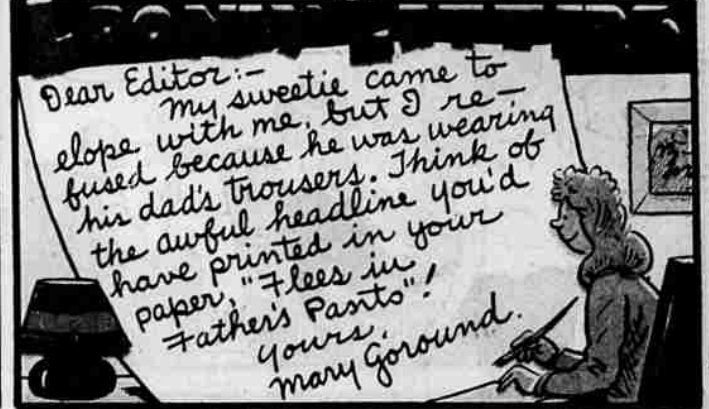 Dear Editor:—
My sweetie came to
elope with me, but I re-
fused because he was wearing
his dad's trousers. Think of
the awful headline you'd
have printed in your
paper, "Flees in
Father's Pants"!
Yours,
Mary Goround.